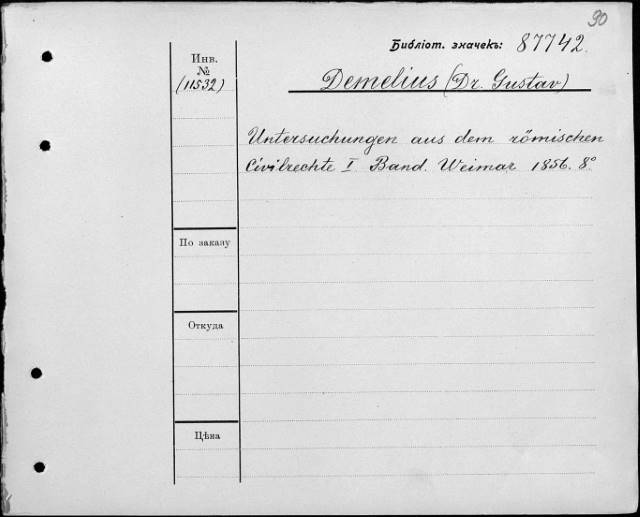 90
Библіот. значекъ: 87742.
Инв.
№
(11532)
Demelius (Dr. Gustav)
Untersuchungen aus dem römischen
Civilrechte I Band. Weimar 1856. 8°
По заказу
Откуда
Цѣна